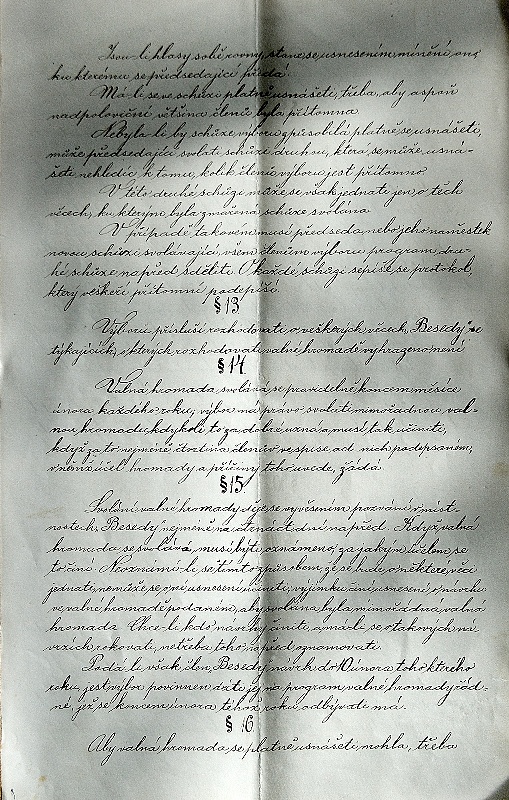 Jsou-li hlasy sobě rovny, stane se usnesením mínění, ono,
ku kterému se předsedající přidá.
Má-li se ve schůzi platně usnášeti, třeba, aby aspoň
nadpoloviční většina členů byla přítomna.
Nebyla-li by schůze výboru způsobilá platně se usnášeti,
může předsedající svolati schůzi druhou, která se může usná-
šeti nehledíc k tomu, kolik členů výboru jest přítomno.
V této druhé schůzi může se však jednati jen o těch
věcech, ku kterým byla zmařená schůze svolána.
V případě takovém musí předseda nebo jeho náměstek
novou schůzi svolávající, všem členům výboru program dru-
hé schůze napřed sděliti. O každé schůzi sepíše se protokol,
který veškeří přítomní podepíší.
§ 13.
Výboru přísluší rozhodovati o veškerých věcech, "Besedy" se
týkajících, o kterých rozhodovati valné hromadě vyhrazeno není.
§ 14.
Valná hromada svolává se pravidelně koncem měsíce
února každého roku; výbor má právo svolati mimořádnou val-
nou hromadu kdykoli to za dobré uzná a musí tak učiniti,
když za to nejméně čtvrtina členů ve spise od nich podepsaném,
v němž účel hromady a příčiny toho uvede, žádá.
§ 15.
Svolání valné hromady děje se vyvěšením pozvání v míst-
nostech "Besedy" nejméně na čtrnáct dní napřed. Když valná
hromada se svolává, musí býti oznámeno, za jakým účelem se
to činí. Neoznámí-li se tímto způsobem, že se bude o některé věci
jednati, nemůže se o ní usnesení učiniti; výjimku činí usnesení o návrhu
ve valné hromadě podaném, aby svolána byla mimořádná valná
hromada. Chce-li kdo návrhy činiti, a má-li se o takových ná-
vrzích rokovati, netřeba toho napřed oznamovati.
Podá-li však člen "Besedy" návrh do 10. února toho kterého
roku, jest výbor povinen dáti jej na program valné hromady řád-
né, jež se koncem února téhož roku odbývati má.
§ 16.
Aby valná hromada se platně usnášeti mohla, třeba